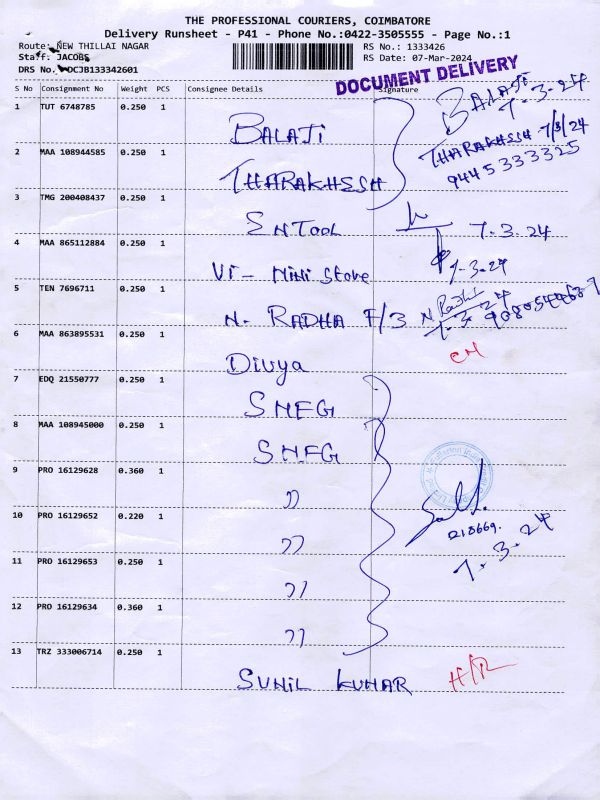 THE PROFESSIONAL COURIERS, COIMBATORE
Delivery Runsheet - P41 - Phone No.:0422-3505555 - Page No.:1
Route: NEW THILLAI NAGAR RS No.: 1333426
Staff: JACOBS RS Date: 07-Mar-2024
DRS No. DCJB133342601
DOCUMENT DELIVERY
S No Consignment No Weight PCS Consignee Details Signature
1 TUT 6748785 0.250 1 BALAJI BALAJI 7-3-24
2 MAA 108944585 0.250 1 THARAKHESH THARAKHESH 7/3/24
9445333325
3 TMG 200408437 0.250 1 SNTOOL 7.3.24
4 MAA 865112884 0.250 1 Vi- Mini Store 7-3-24
5 TEN 7696711 0.250 1 N. RADHA F/3 N Radhi 7.3.24
6 MAA 863895531 0.250 1 Divya CN
7 EDQ 21550777 0.250 1 SMFG
8 MAA 108945000 0.250 1 SMFG
9 PRO 16129628 0.360 1 ''
10 PRO 16129652 0.220 1 ''
218669.
7.3.24
11 PRO 16129653 0.250 1 ''
12 PRO 16129634 0.360 1 ''
13 TRZ 333006714 0.250 1 SUNIL KUMAR H/R